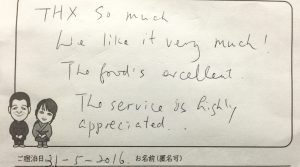 THX so much
We like it very much!
The food's excellent.
The service is highly
appreciated..
ご宿泊日 31-5-2016. お名前(匿名可)